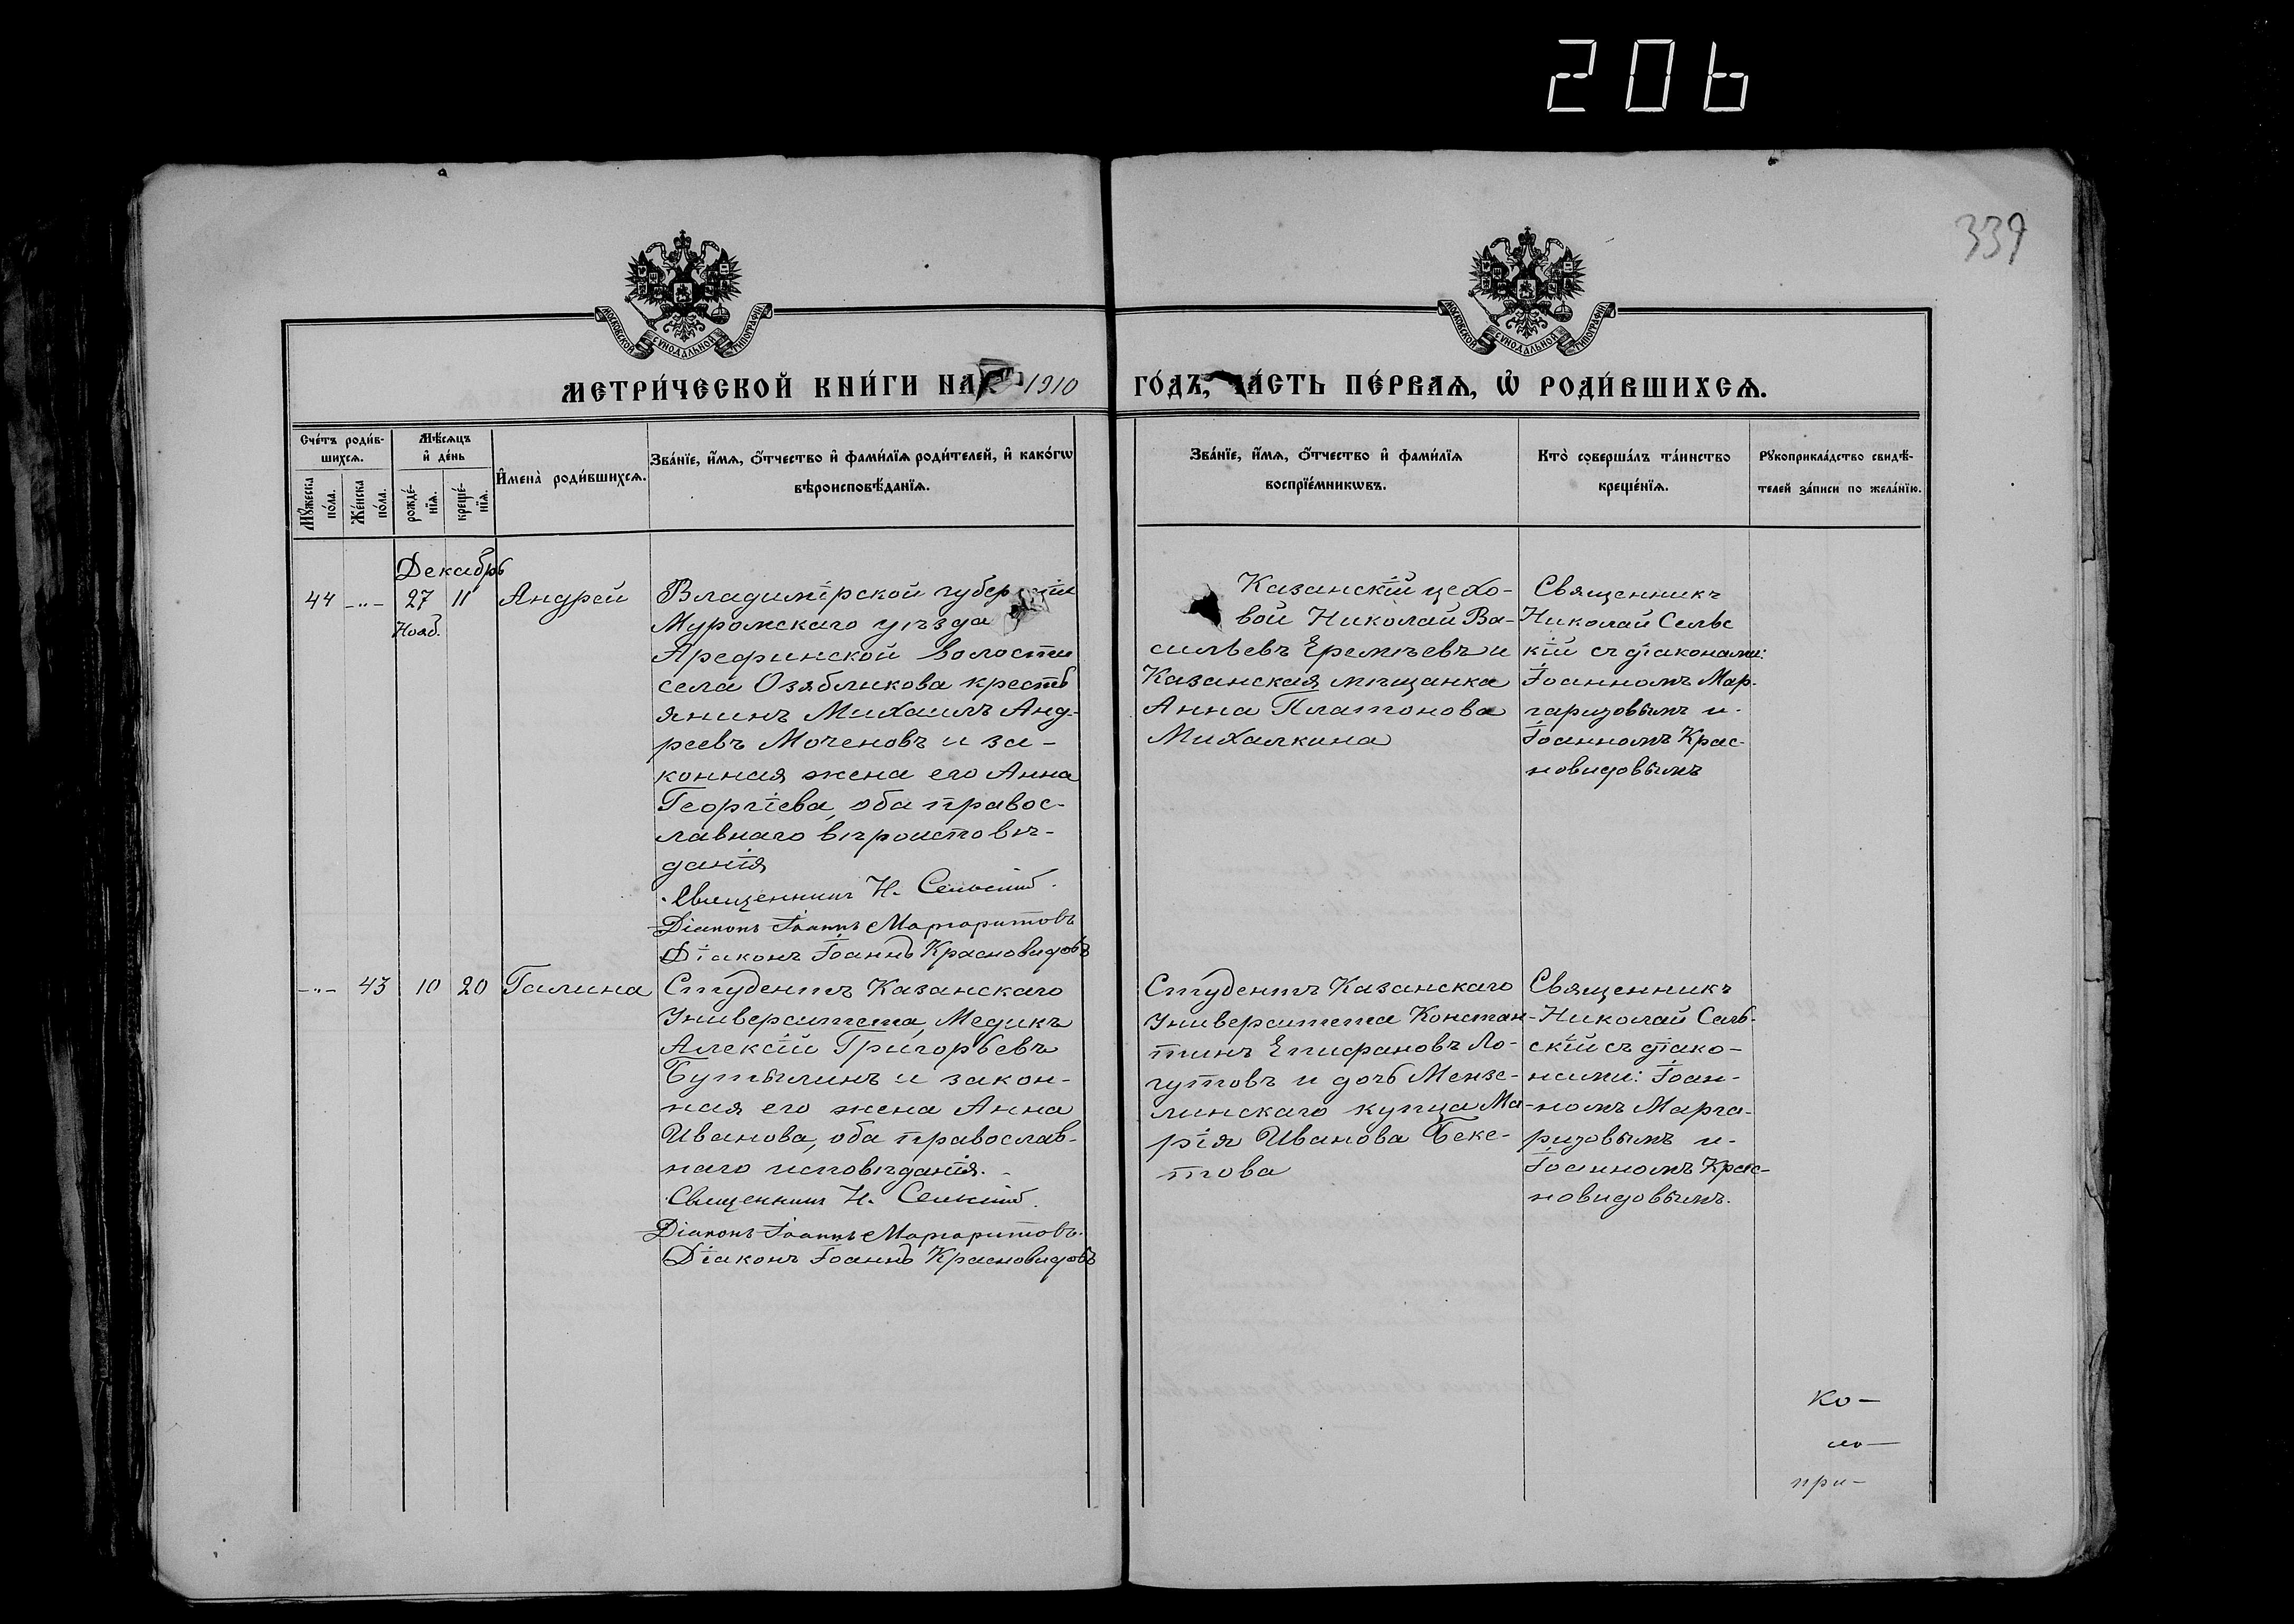 206
339
МОСКОВСКОЙ СѴНОДАЛЬНОЙ ТИПОГРАФІИ
МОСКОВСКОЙ СѴНОДАЛЬНОЙ ТИПОГРАФІИ
МЕТРИ́ЧЕСКОЙ КНИ́ГИ НА 1910
ГО́ДЪ, ЧА́СТЬ ПЕ́РВАѦ, Ѡ҆ РОДИ́ВШИХСѦ.
Сче́тъ роди́в-
шихсѧ.
Мꙋ́жеска по́ла.
Же́нска по́ла.
Мѣ́сѧцъ
и҆ де́нь
рожде́-
нїѧ.
креще́-
нїѧ.
И҆мена̀ роди́вшихсѧ.
Зва́нїе, и҆́мѧ, ѻ҆́тчество и҆ фами́лїѧ роди́телей, и҆ како́гѡ
вѣроисповѣ́данїѧ.
Зва́нїе, и҆́мѧ, ѻ҆́тчество и҆ фами́лїѧ
воспрїе́мникѡвъ.
Кто̀ соверша́лъ та́инство
креще́нїѧ.
Рꙋкоприкла́дство свидѣ́-
телей за́писи по жела́нїю.
Декабрь
44 -"- 27 11 Андрей
Нояб.
Владимірской губерніи
Муромскаго уѣзда
Арефинской волости
села Озябликова кресть
янинъ Михаилъ Анд-
реевъ Моченовъ и за-
конная жена его Анна
Георгіева, оба правос-
лавнаго вѣроисповѣ-
данія
Священникъ Н. Сельскій.
Діаконъ Іоаннъ Маргаритовъ
Діаконъ Іоаннъ Красновидовъ
Казанскій цехо-
вой Николай Ва-
сильевъ Еремѣевъ и
Казанская мѣщанка
Анна Платонова
Михалкина
Священникъ
Николай Сельс
кій съ діаконами:
Іоанномъ Мар-
гаритовымъ и
Іоанномъ Крас-
новидовымъ
-"- 43 10 20 Галина
Студентъ Казанскаго
Университета, Медикъ
Алексій Григорьевъ
Бутылинъ и закон-
ная его жена Анна
Иванова, оба православ-
наго исповѣданія.
Священникъ Н. Сельскій.
Діаконъ Іоаннъ Маргаритовъ.
Діаконъ Іоаннъ Красновидовъ
Студентъ Казанскаго
Университета Констан-
тинъ Епифановъ Ло-
гутовъ и дочь Мензе-
линскаго купца Ма-
рія Иванова Беке-
това
Священникъ
Николай Сель-
скій съ діако-
нами: Іоан-
номъ Марга-
ритовымъ и
Іоанномъ Крас-
новидовымъ.
Ко-
ло-
при-